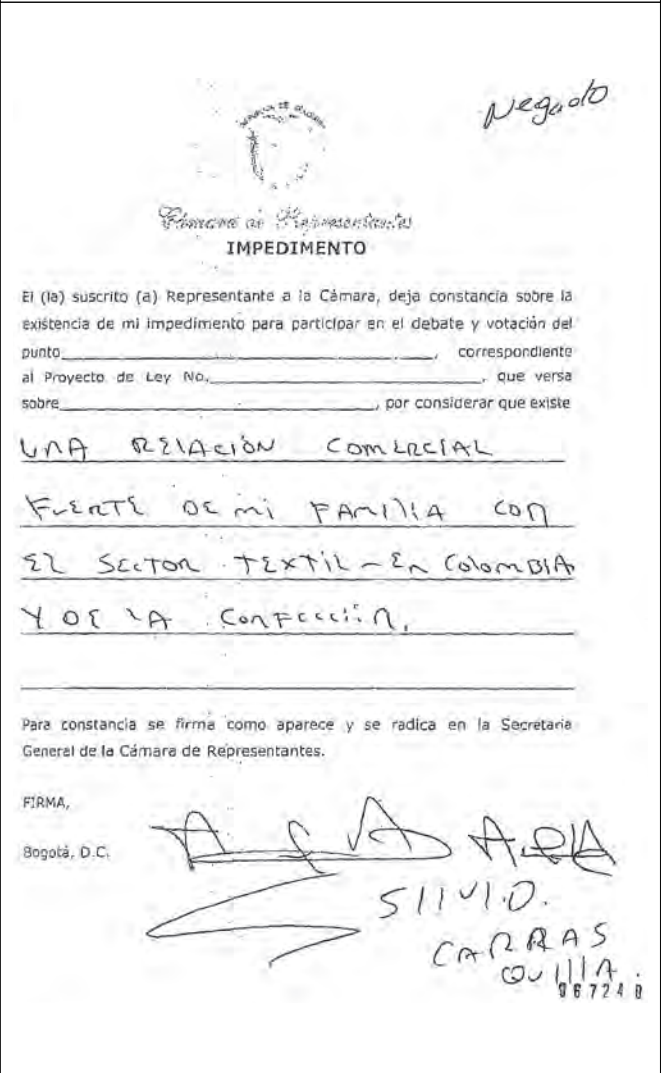 Negado
Cámara de Representantes
IMPEDIMENTO
El (la) suscrito (a) Representante a la Cámara, deja constancia sobre la
existencia de mi impedimento para participar en el debate y votación del
punto____________________, correspondiente
al Proyecto de Ley No.____________________, que versa
sobre____________________, por considerar que existe
UNA RELACIÓN COMERCIAL
FUERTE DE mi FAMILIA CON
EL SECTOR TEXTIL - EN COLOMBIA
Y DE LA CONFECCIÓN.
Para constancia se firma como aparece y se radica en la Secretaria
General de la Cámara de Representantes.
FIRMA,
Bogotá, D.C.
SILVIO.
CARRAS
QUILLA.